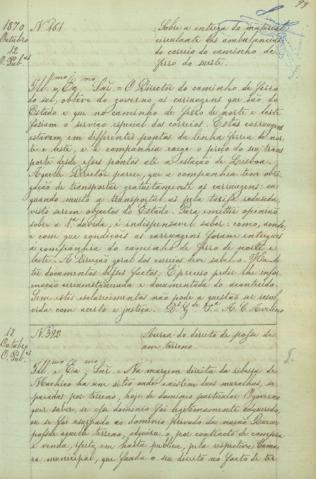 1870
Outubro
12
O. Pub.as
N.º 361
Sobre a entrega do material
circulante das ambulancias
do correio do caminho de
ferro do sueste.
Ill.mo e Ex.mo Snr. = O Director do caminho de ferro
do sul, obteve do governo, as carruagens que são do
Estado e que no caminho de ferro de norte e leste
fasiam o serviço especial dos correios. Estas carruagens
estavam em differentes pontos da linha ferrea do nor-
te e leste, e a companhia exige o preço do seu trans-
porte desde esses pontos até a estação de Lisboa.
Aquelle Director parece, que a companhia tem obri-
gação de transportar gratuitamente as carruagens: ou
quando muito a transportal-as pela tarifa reduzida,
visto serem objectos do Estado. Para emittir opinião
sobre a duvida, é indispensavel saber: como, quando
e com que condições as carruagens foram entregues
á companhia do caminho de ferro do norte e
leste. A Direcção geral dos correios deve sabel-o. Ha de
ter documentos desses factos. É preciso pedir lhe infor-
mação circumstanciada e documentada do acontecido.
Sem estes esclarecimentos não póde a questão ser resol-
vida com acerto e justiça. D.s G.e
12
Outubro
O. Pub.as
N.º 392
Ácerca do direito de posse de
um terreno.
Ill.mo e Ex.mo Snr. = Na margem direita da ribeira de
Machico ha um sitio onde existem duas muralhas, se-
paradas por terreno, hoje de dominio particular. O governo
quer saber, se esse dominio foi legitimamente adquirido,
ou se foi usurpado ao dominio privado da nação.
aquelle terreno, por contracto de compra
e venda, feita em hasta publica, pela respectiva Cama-
ra municipal, que funda o seu direito no facto de ter